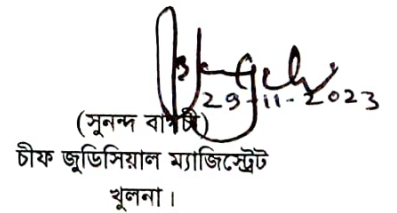 29-11-2023
(সুনন্দ বাগচী)
চীফ জুডিসিয়াল ম্যাজিস্ট্রেট
খুলনা।